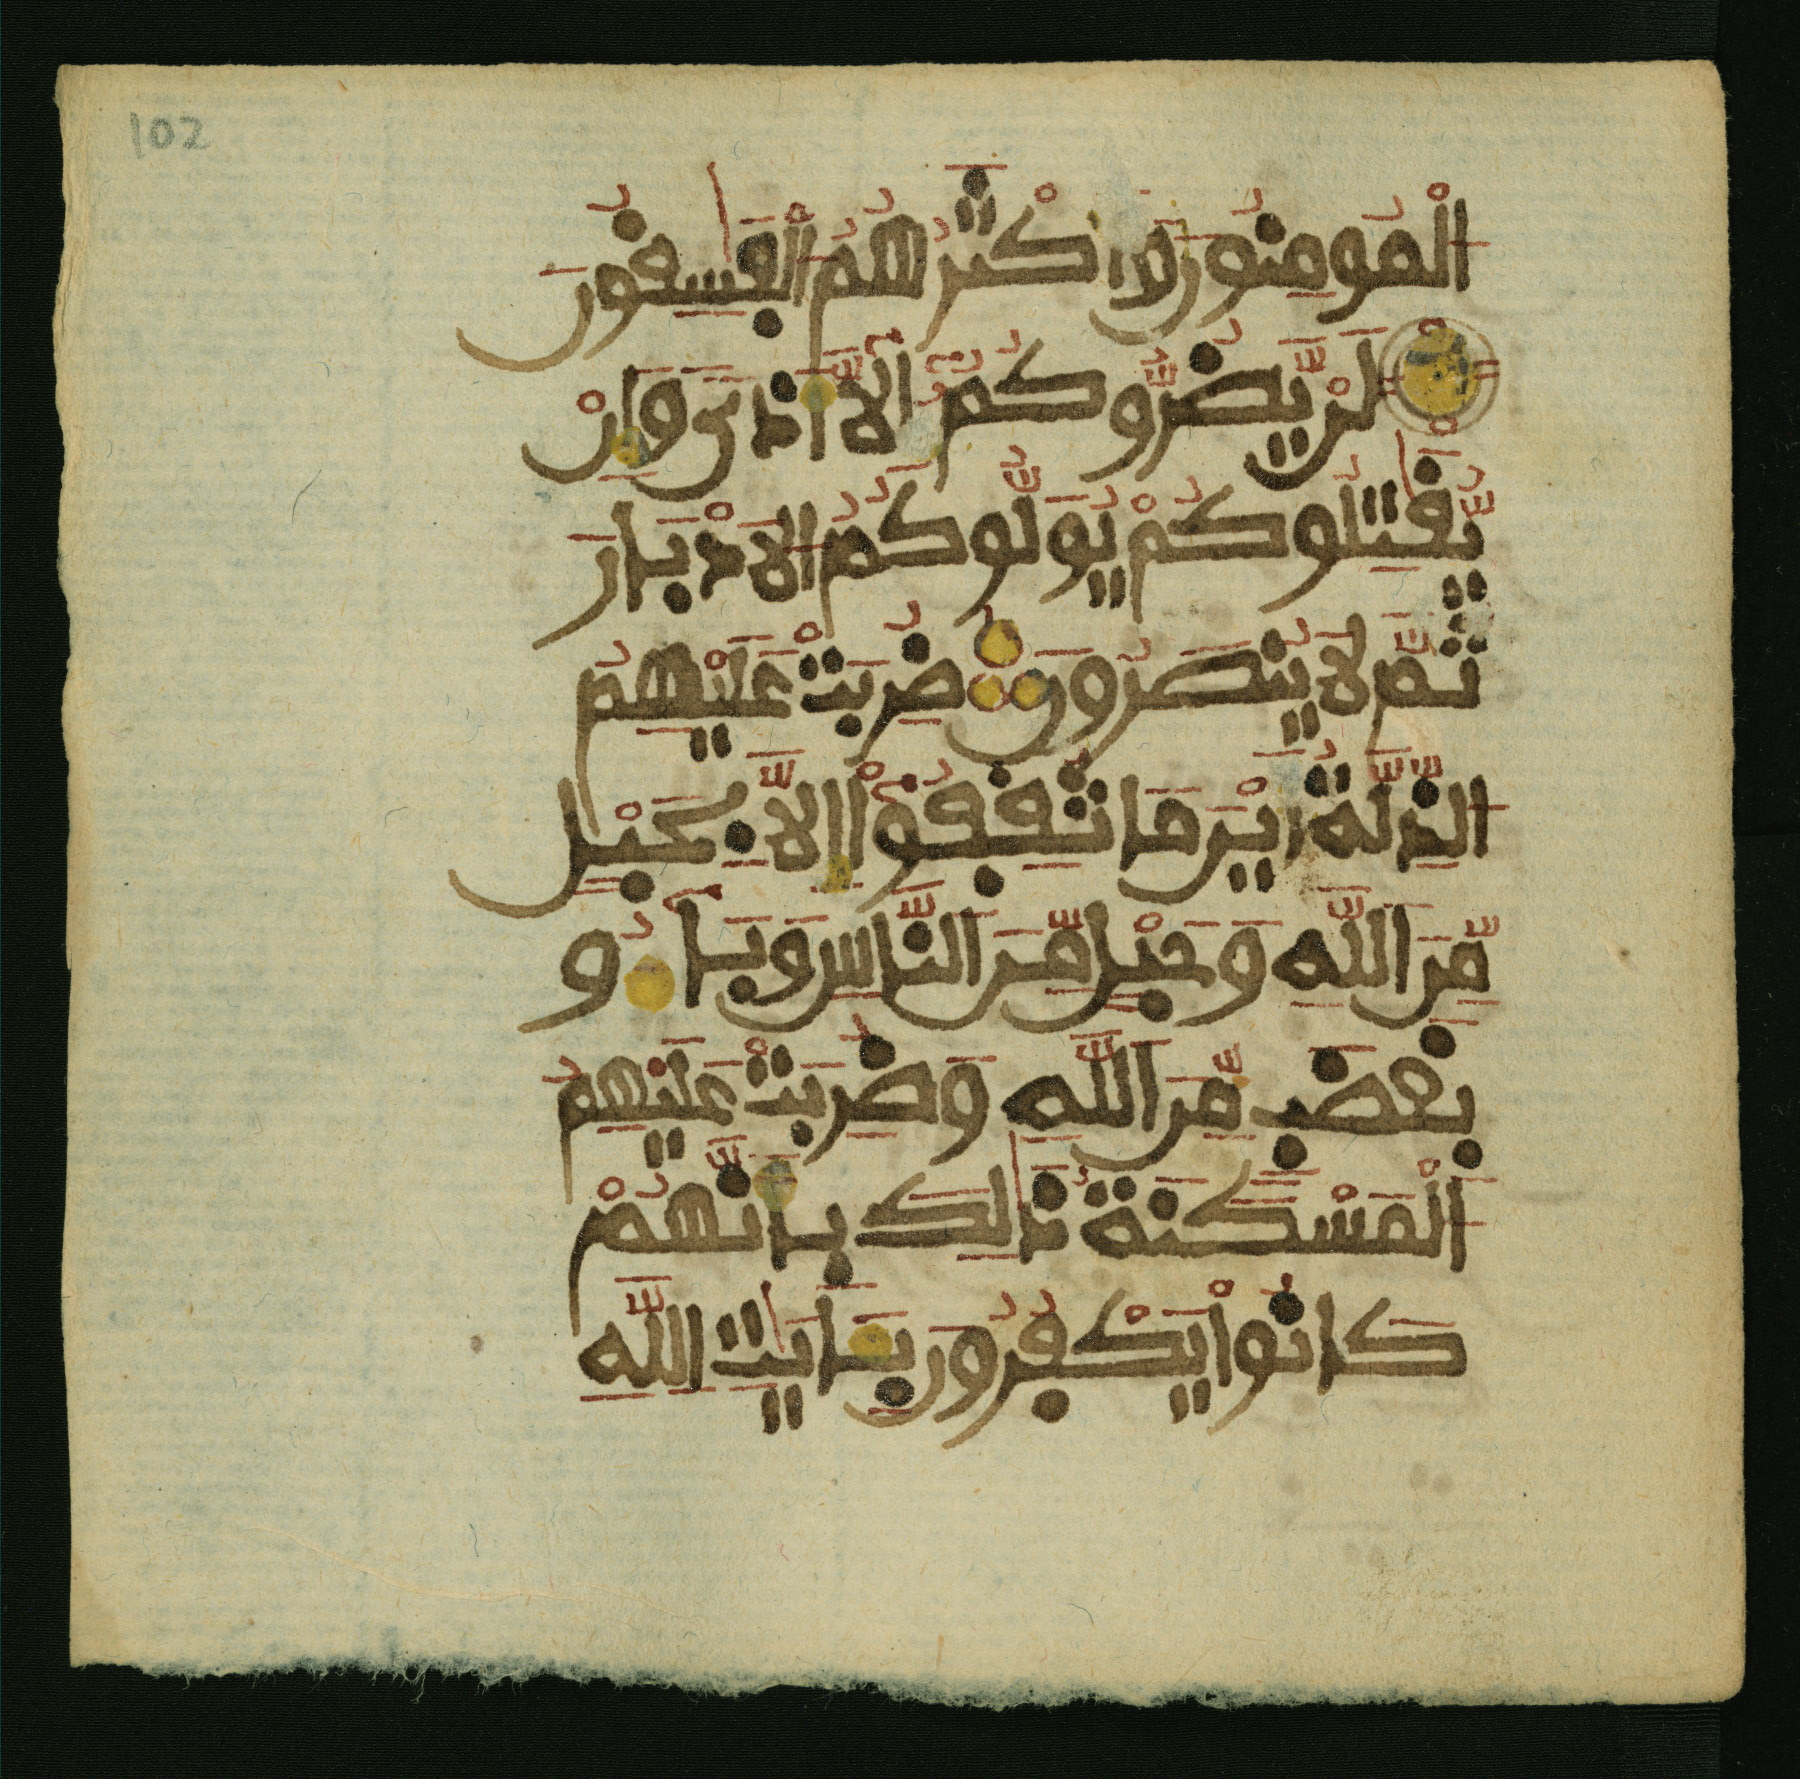 102
الْمُومِنُونَ وَأَكْثَرُهُمُ الْفَٰسِقُونَ
لَنْ يَّضُرُّوكُمُ إِلَّا أَذىً وَإِنْ
يُّقَٰتِلُوكُمْ يُوَلُّوكُمُ الَادْبَارَ
ثُمَّ لَا يُنصَرُونَ ضُرِبَتْ عَلَيْهِمُ
الذِّلَّةُ أَيْنَ مَا ثُقِفُوا إِلَّا بِحَبْلٍ
مِّنَ اللَّهِ وَحَبْلٍ مِّنَ النَّاسِ وَبَاءُو
بِغَضَبٍ مِّنَ اللَّهِ وَضُرِبَتْ عَلَيْهِمُ
الْمَسْكَنَةُ ذَٰلِكَ بِأَنَّهُمْ
كَانُوا يَكْفُرُونَ بِـَٔايَٰتِ اللَّهِ